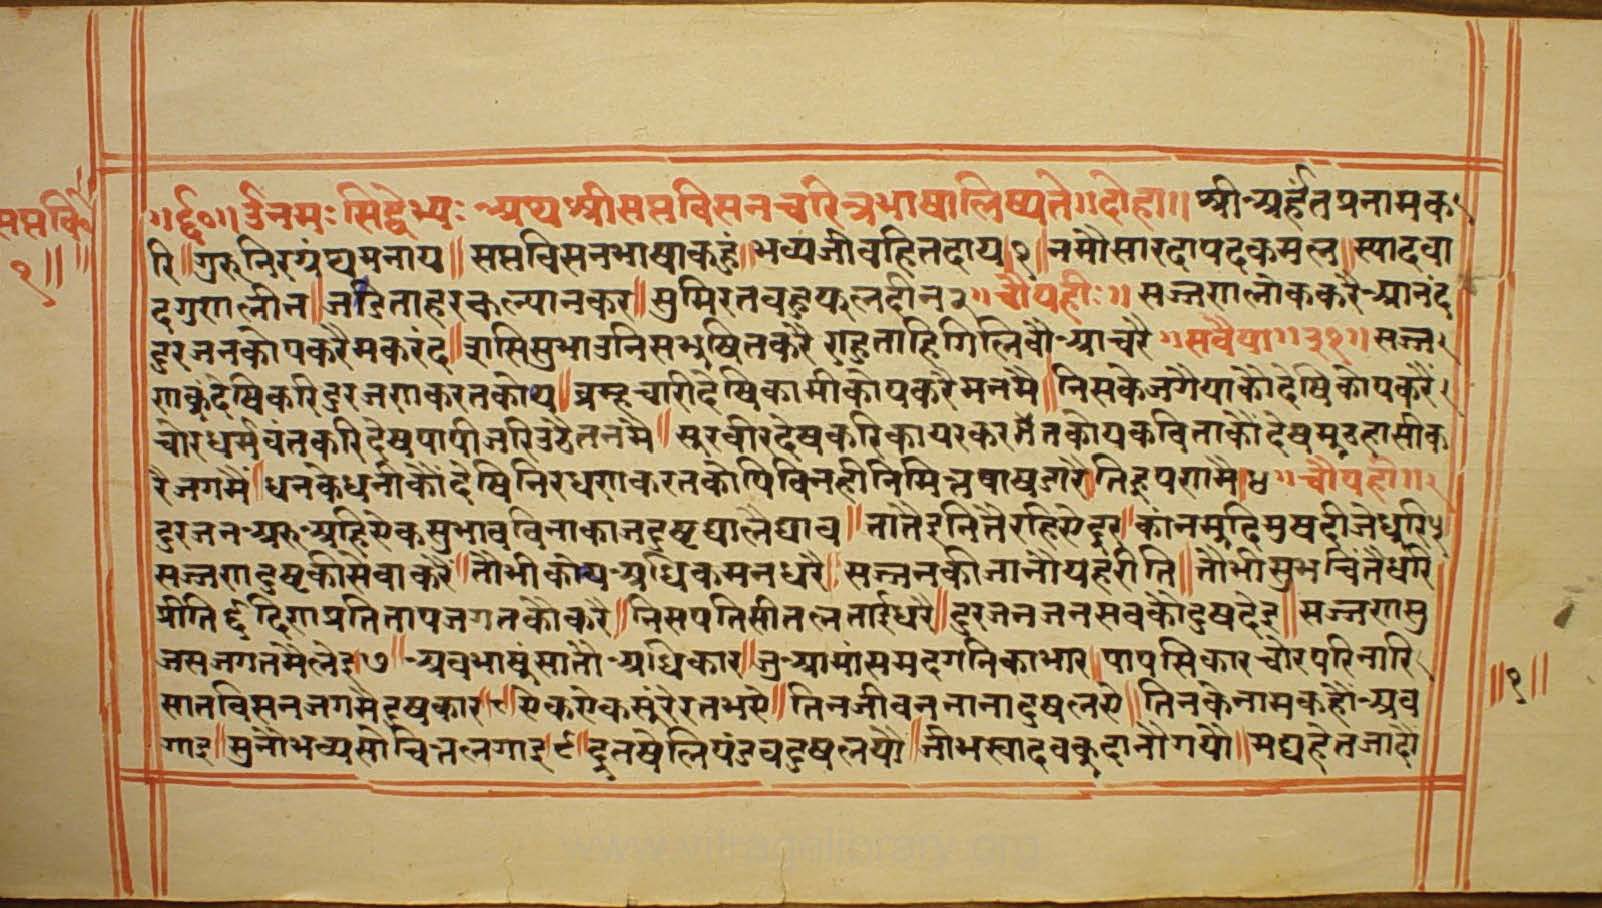 सप्तवि
१॥
॥ र्द्द०॥ उंनमः सिद्धेभ्यः अथ श्रीसप्तविसनचरित्रभाषालिष्यते ॥ दोहा ॥ श्रीअर्हंतप्रनामक
रि ॥ गुरुनिरग्रंथमनाय ॥ सप्तविसनभाषाकहुं ॥ भव्यजीवहितदाय १ ॥ नमौसारदापदकमल ॥ स्यादवा
दगुणलीन ॥ जडिताहरकल्यानकर ॥ सुमिरतवहुफुलदीन २ ॥ चौपही: ॥ सज्जणलोककरैआनंद
दुरजनकोपकरैमकरंद ॥ ससिसुभाउनिसभुषितकरै राहुताहिगिलिवौआचरै ॥ सवैया ॥ ३१ ॥ सज्ज
णकुंदेषिकरिदुरजणकरतकोप ॥ व्रम्हचारीदेषिकामीकोपकरैमनमै ॥ निसकेजगैयाकौदेषिकोपकरैं
चोरधर्मवंतकरिदेषपापीजरिउठैतनमै ॥ सुरवीरदेषकरिकायरकरतकोपकविताकौंदेषमुढहासीक
रैजगमैं ॥ धनकेधनीकौंदेषिनिरधणकरतकोपविनहीनिमित्तषाषडारैतिहूपणमै ॥ ४ ॥ चौपही ॥
दुरजनअरुअहिसेकसुभाव विनाकाजदुषद्यालैद्याव ॥ तातैइनितैरहिसेदूर ॥ कांनमुदिमुषदीजेधुरि ५
सज्जणदुष्टकीसेवाकरै ॥ तौभीकोपअधिकमनधरै ॥ सज्जनकीजानौयहरीति ॥ तौभीसुभचिंतैधरि
प्रीति ६ दिणप्रतितापजगतकौकरै ॥ निसपतिसीतलताईधरै ॥ दुरजनजनसवकौदुषदेइ ॥ सज्जणसु
जसजगतमैलेइ ७ ॥ अवभासुंसातौअधिकार ॥ जुआमांसमदगनिकाभार ॥ पापसिकारचोरपरिनारि
सातविसनजगमैदुषकार ॥ ८ ॥ सेकसेकसुंरैरतभसे ॥ तिनजीवननानादुषलसे ॥ तिनकेनामकहौअव
गाइ ॥ सुनौभव्यसोचितलगाइ ॥ ९ ॥ दूतषेलिपंडवदुषलयौ ॥ जीभस्वादवकुदानौगयौ ॥ मद्यहेतजादो
॥ १ ॥